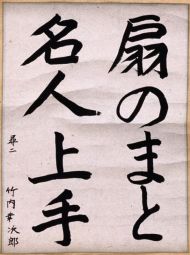 扇のまと
名人上手
尋二
竹内幸次郎